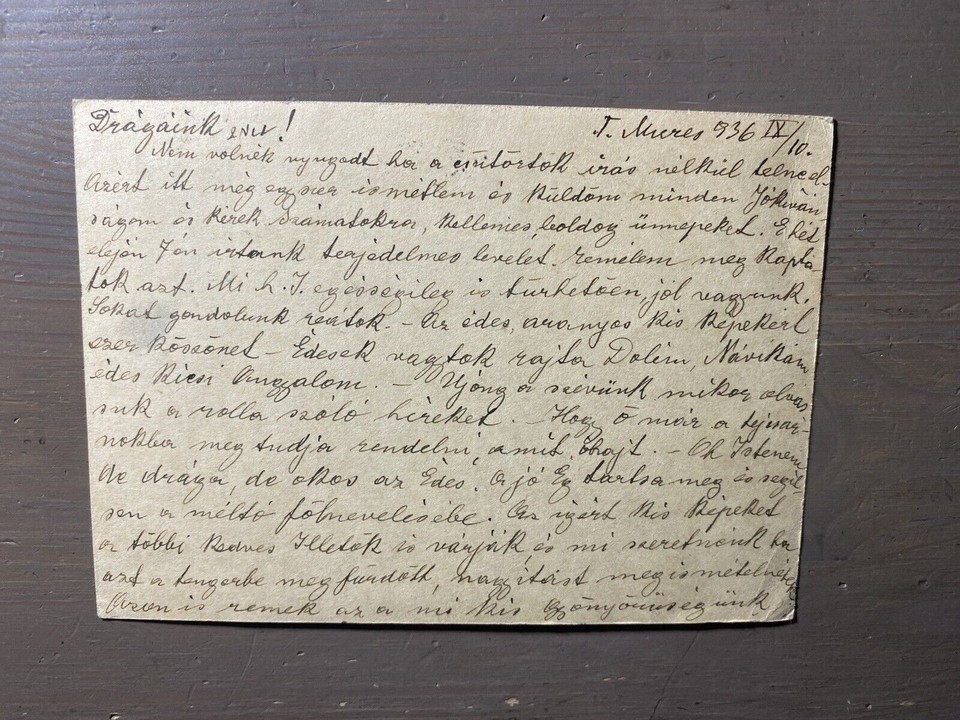 Drágáink ! T. Mures 936 IX/10.
Nem volnék nyugodt ha a csütörtök írás nélkül telne el.
Azért itt még egyszer ismétlem és küldöm minden Jókíván
ságom és kérek Számatokra, kellemes, boldog ünnepeket. E hét
elején 7én írtunk terjedelmes levelet. remélem meg kapta-
tok azt. Mi h. I. egésségileg is tűrhetően, jól vagyunk.
Sokat gondolunk reátok. - Az édes, aranyos kis képekért
ezer köszönet - Édesek vagytok rajta Dolim, Návikám
édes kicsi Anygalom. - Ujong a szívünk mikor olvas
suk a rolla szóló híreket. - Hogy ő már a tejcsar-
nokba meg tudja rendelni, amit óhajt. - Oh Istenem
de drága, de okos az Édes. A jó Ég tartsa meg és segít-
sen a méltó fölnevelésébe. Az igért kis képeket
a többi kedves Illetők is várják, és mi szeretnénk ha
azt a tengerbe meg fürdött, nagyitást megismételnétek
Azon is remek az a mi kis gyönyörüségünk